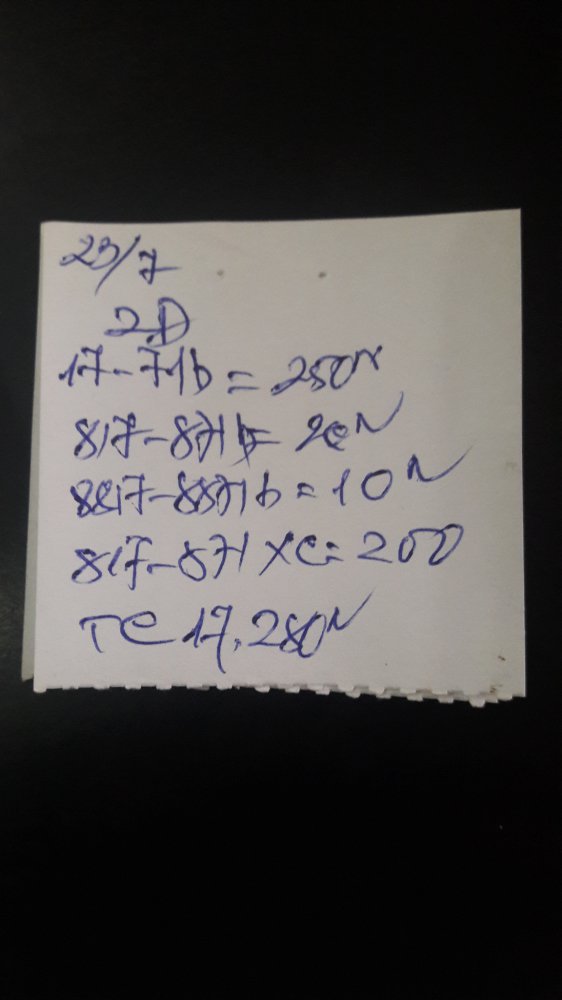 23/7
2D
17-71b = 250N
817-871b = 20N
8817-8871b = 10N
817-871 XC = 200
TC 17.280N